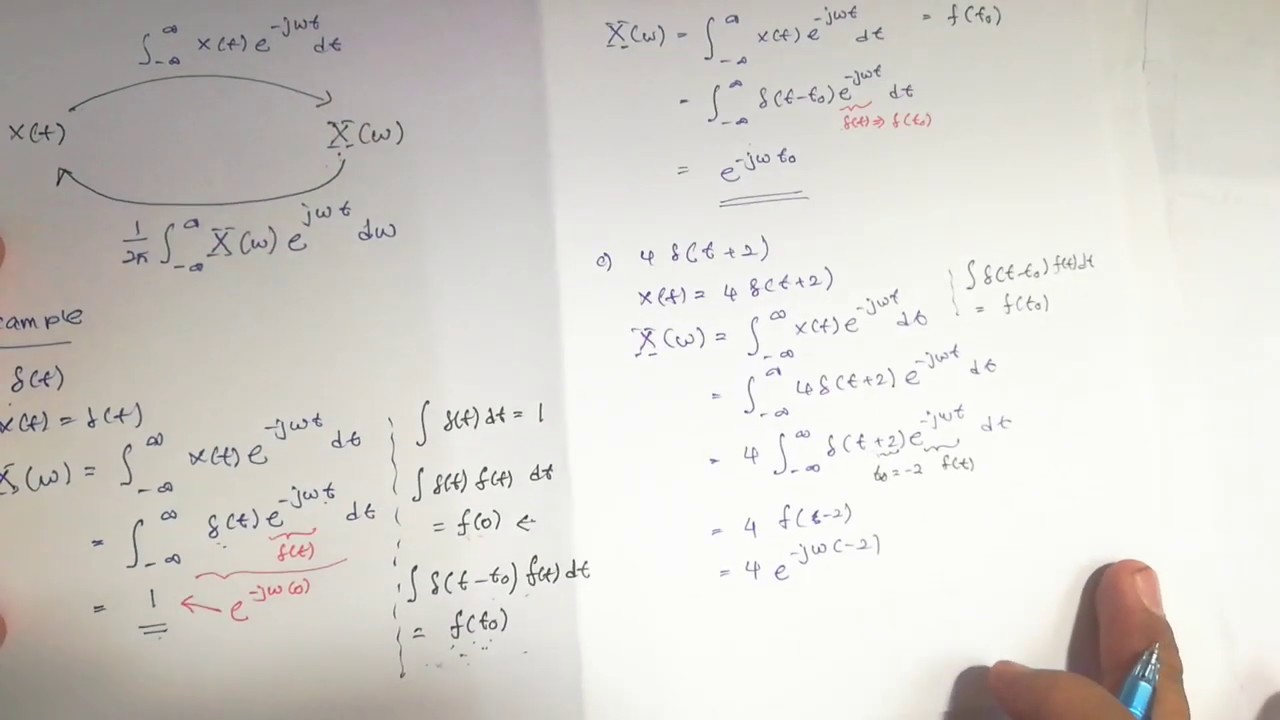 ∫_{-∞}^{∞} x(t) e^{-jωt} dt
x(t) X(ω)
1/2π ∫_{-∞}^{∞} X(ω) e^{jωt} dω
ample
δ(t)
x(t) = δ(t)
X(ω) = ∫_{-∞}^{∞} x(t) e^{-jωt} dt
= ∫_{-∞}^{∞} δ(t) e^{-jωt} dt
f(t)
= 1 ← e^{-jω(0)}
∫ δ(t) dt = 1
∫ δ(t) f(t) dt
= f(0) ←
∫ δ(t-t₀) f(t) dt
= f(t₀)
X(ω) = ∫_{-∞}^{∞} x(t) e^{-jωt} dt = f(t₀)
= ∫_{-∞}^{∞} δ(t-t₀) e^{-jωt} dt
f(t) ⇒ f(t₀)
= e^{-jωt₀}
c) 4 δ(t+2)
x(t) = 4 δ(t+2)
X(ω) = ∫_{-∞}^{∞} x(t) e^{-jωt} dt
∫ δ(t-t₀) f(t) dt
= f(t₀)
= ∫_{-∞}^{∞} 4δ(t+2) e^{-jωt} dt
= 4 ∫_{-∞}^{∞} δ(t+2) e^{-jωt} dt
t₀=-2 f(t)
= 4 f(t-2)
= 4 e^{-jω(-2)}